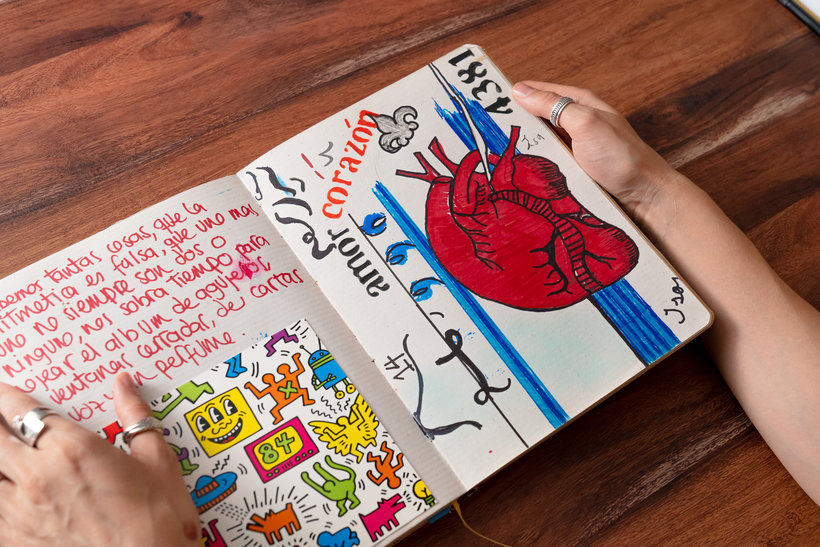 bemos tantas cosas, que la
ritmetica es falsa, que uno mas
uno no siempre son dos o
ninguno, nos sobra tiempo para
ojear el album de agujeros
ventanas cerradas, de cartas
voz y un perfume.
84
amor corazón
4381
Isa
14
Isa